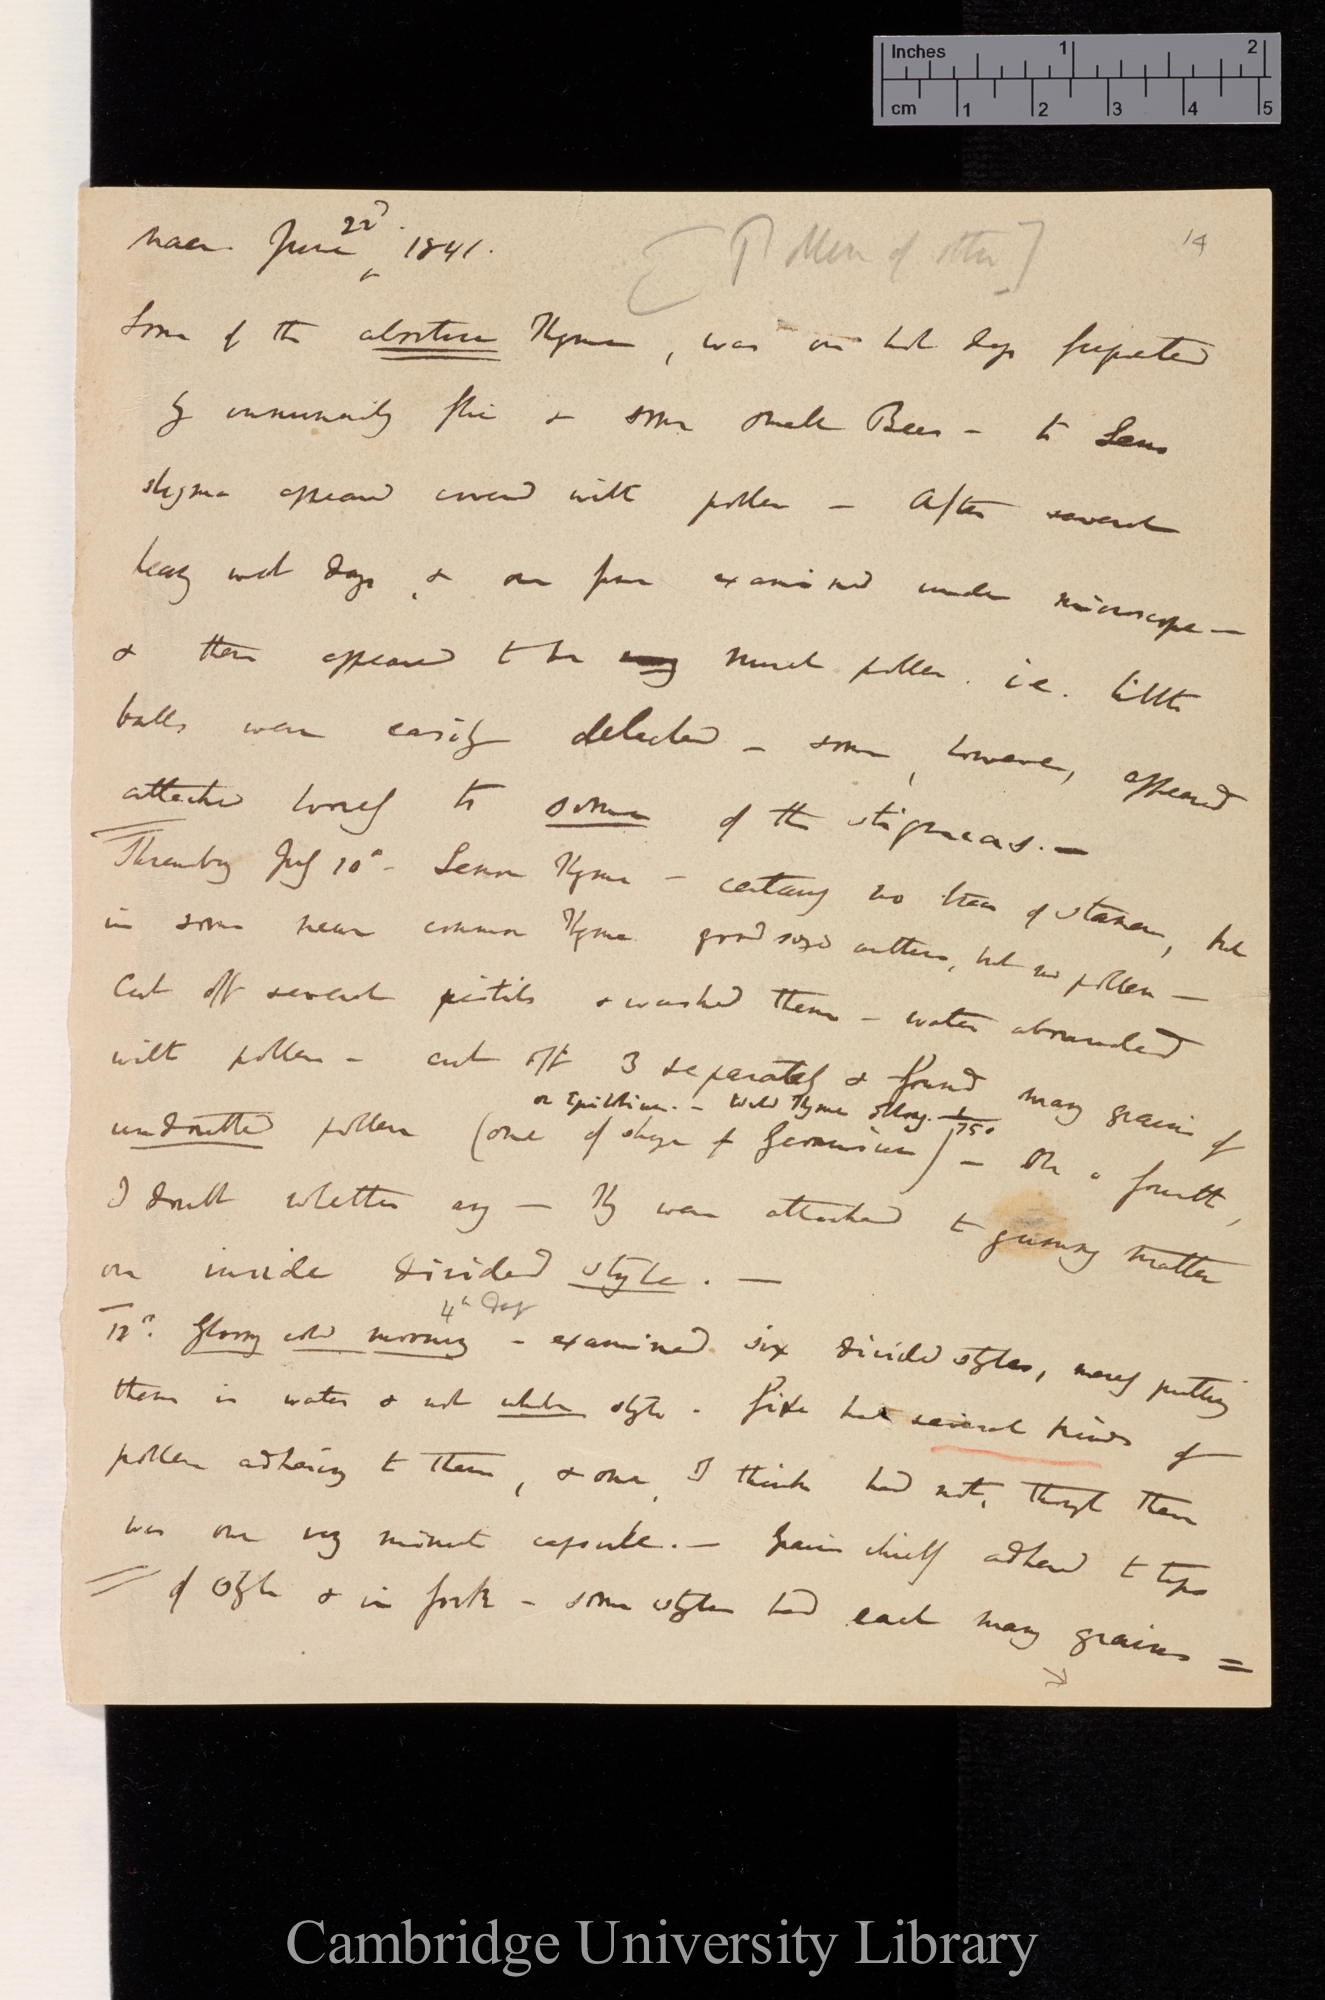 Inches 1 2
cm 1 2 3 4 5
Maer. June 22d. 1841.
[Pollen of other]
14
Some of the abortive Thyme, was on hot days frequented
by innumerably flies & some small Bees — to Lens
stigma appeared covered with pollen — After several
heavy wet days, & on few examined under microscope —
& there appeared to be very much pollen. i.e. little
balls were easily detected — some, however, appeared
attached loosely to some of the stigmas. —
Shrewsbury July 10th — Lemon Thyme — certainly no trace of stamen, but
in some near common Thyme good sized anthers, but no pollen —
Cut off several pistils & washed them — water abounded
with pollen — cut off 3 separately & found many grains of
or Epilobium. — Wild Thyme oblong. 1/750
undoubted pollen (one of shape of Geranium) — On a fourth,
I doubt whether any — They were attached to gummy matter
on inside divided style. —
4th day
12th. Gloomy cold morning — examined six divided styles, merely putting
them in water & not whole style. Five had several kinds of
pollen adhering to them, & one, I think had not, though there
was one very minute capsule. — Grains chiefly adhered to tips
of style & in fork — some styles had each many grains =
Cambridge University Library